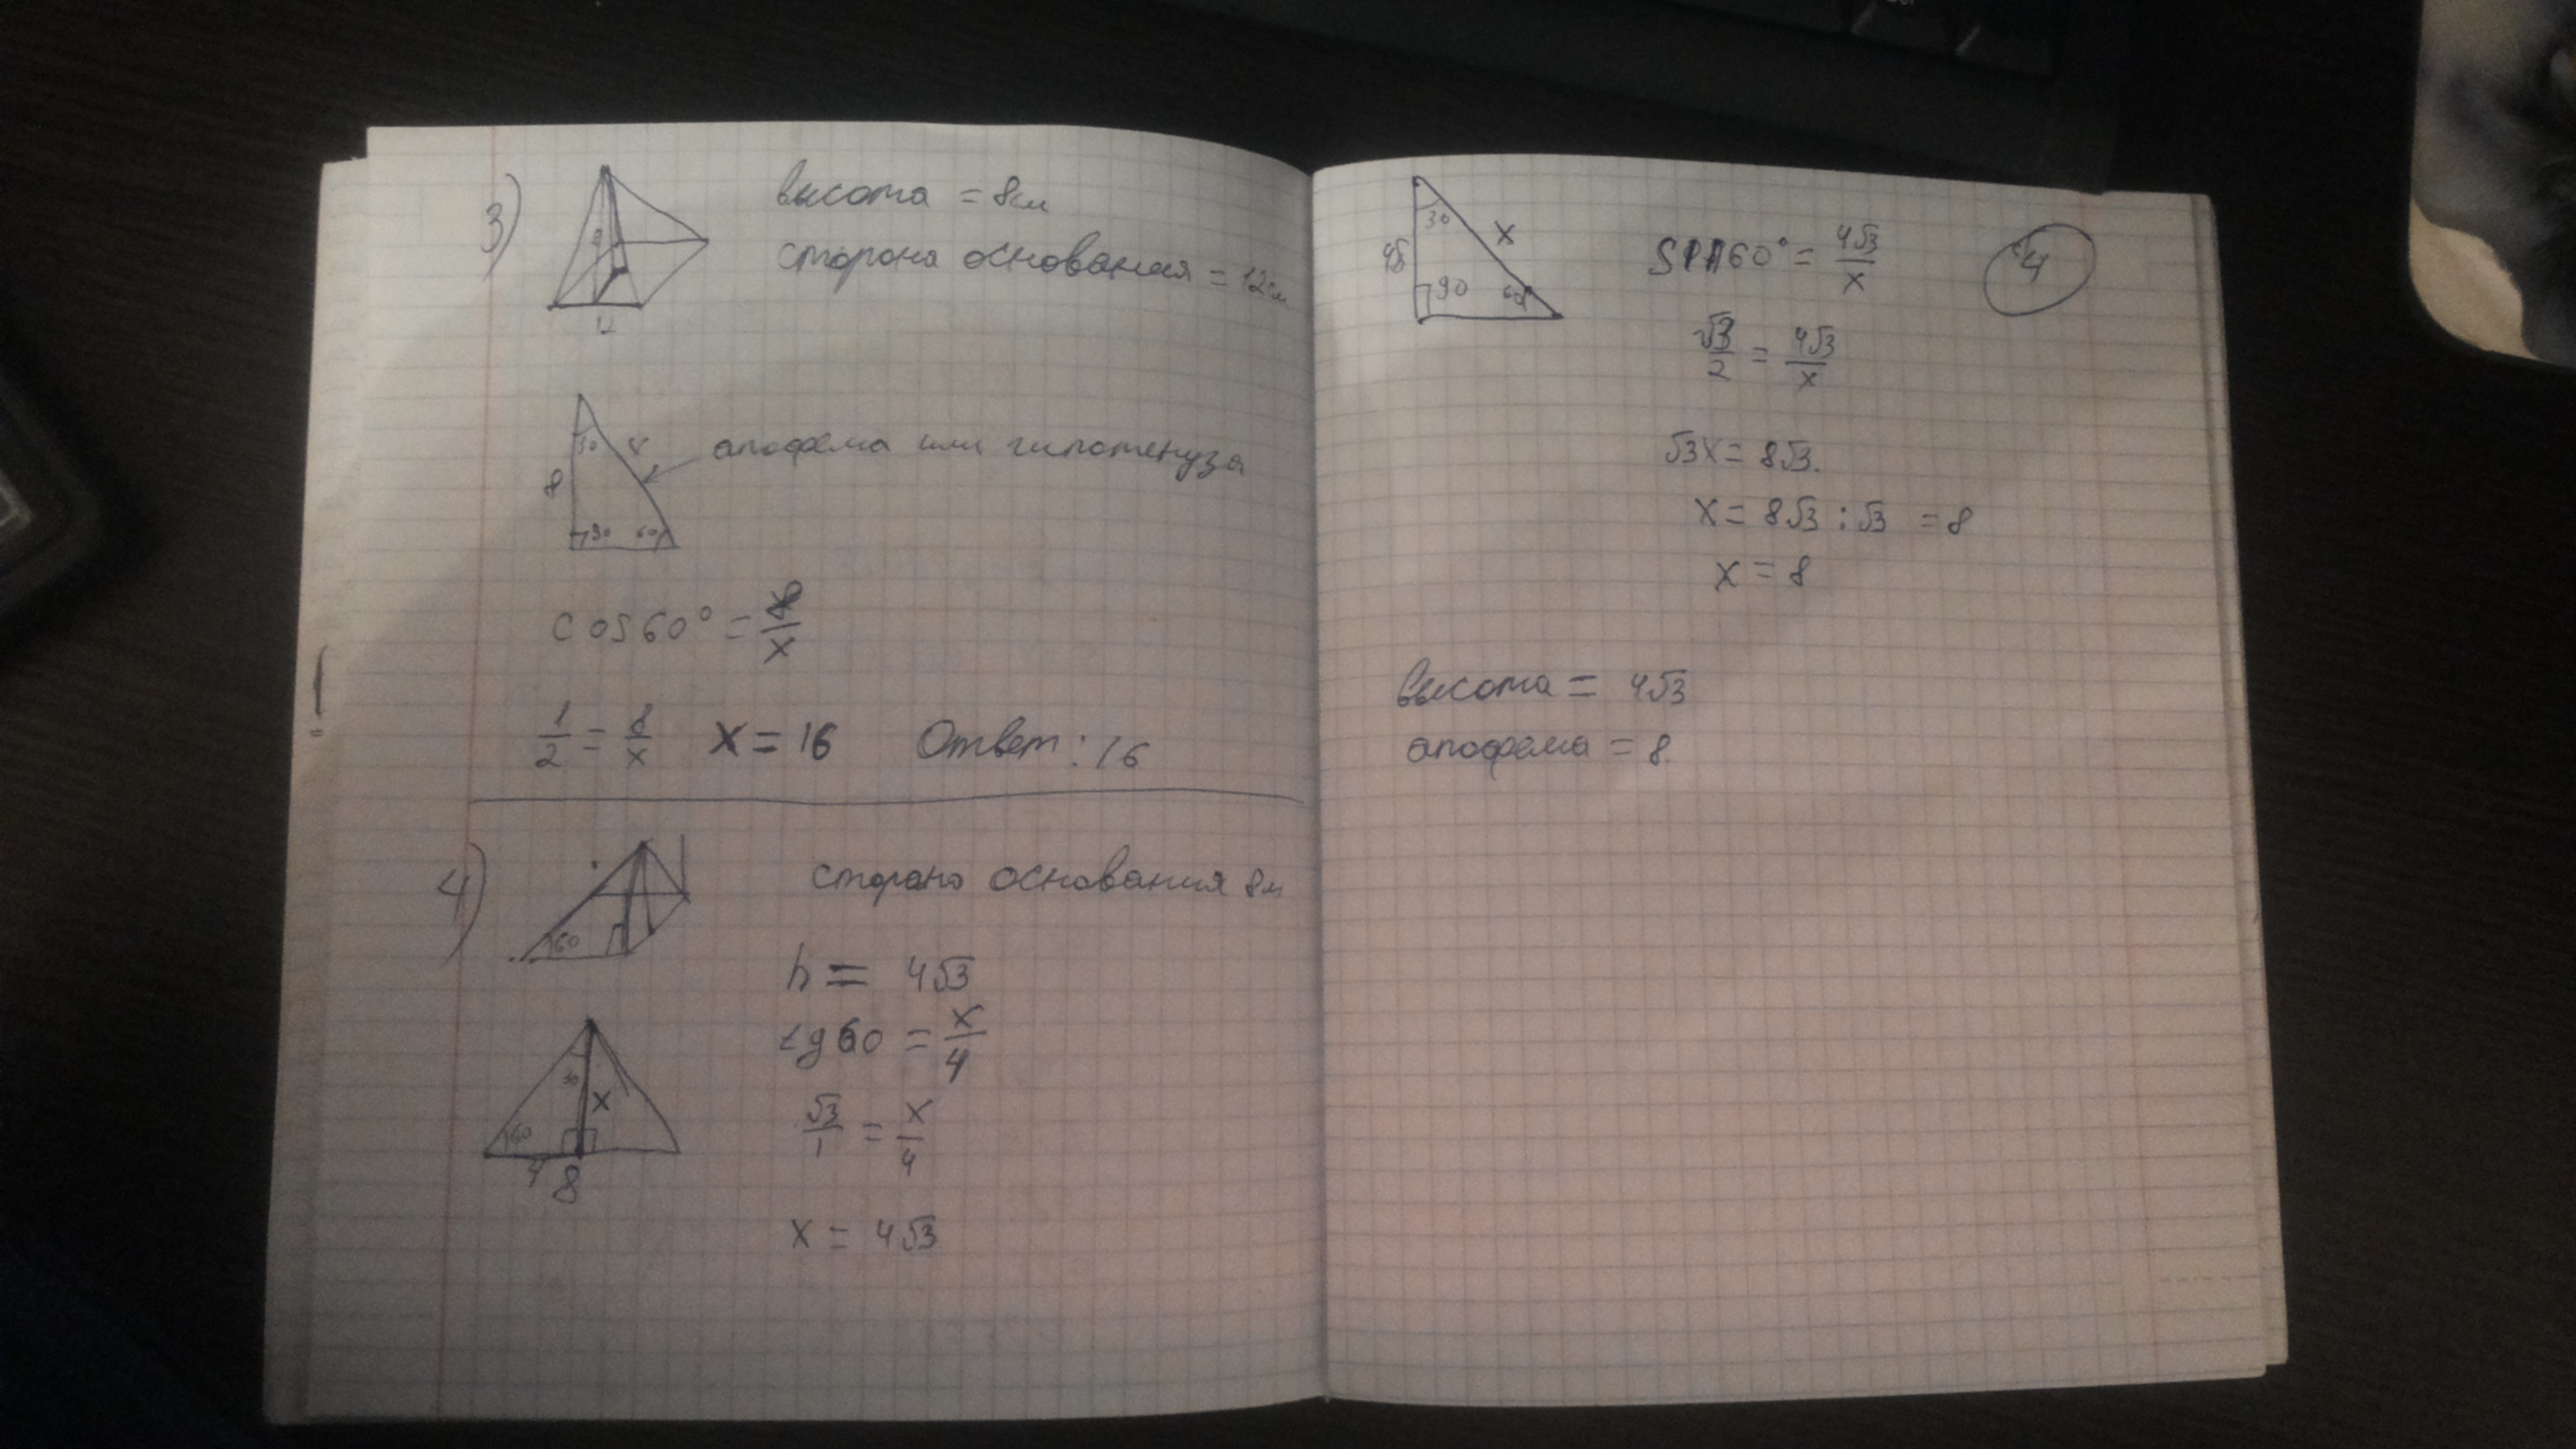 3)
высота = 8см
сторона основания = 12см
12
30 x
апофема или гипотенуза
8
90 60
cos60° = 8/x
1/2 = 8/x x = 16 Ответ: 16
4)
60
сторона основания 8м
h = 4√3
tg60 = x/4
30
x
60
4
8
√3/1 = x/4
x = 4√3
30
x
4√3
90 60
sin60° = 4√3/x
4
√3/2 = 4√3/x
√3x = 8√3.
x = 8√3 : √3 = 8
x = 8
высота = 4√3
апофема = 8